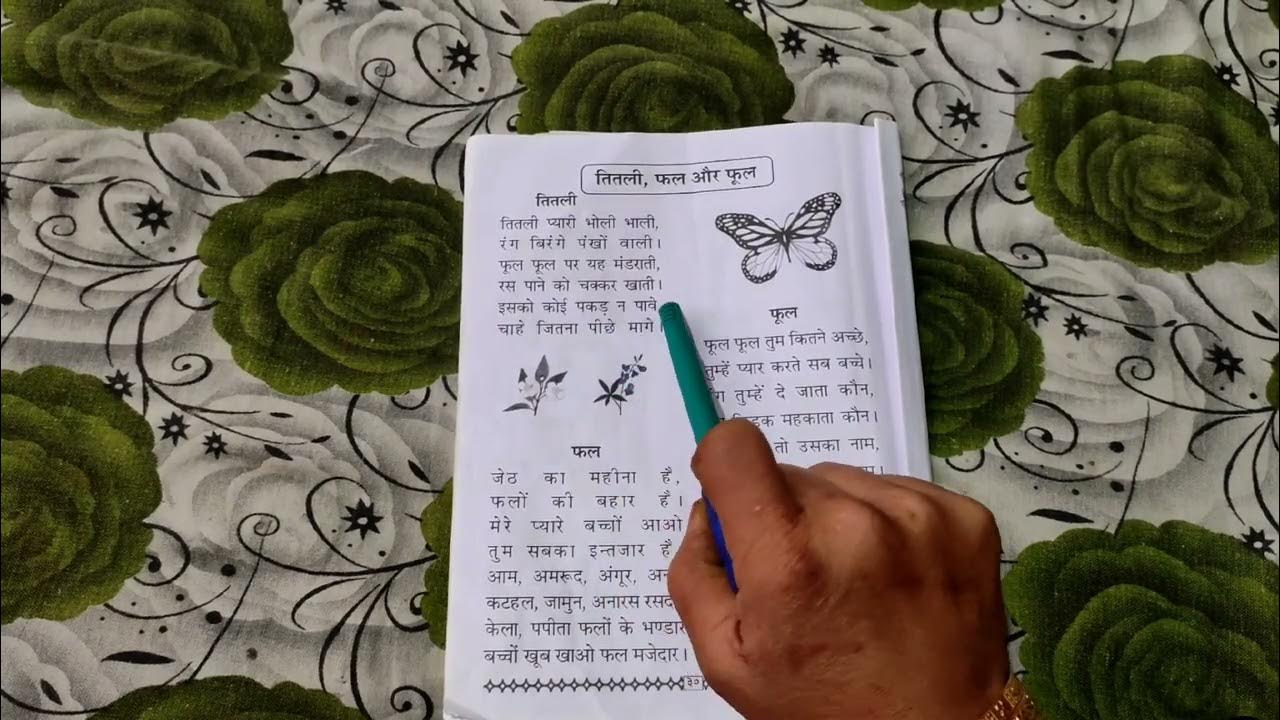 तितली, फल और फूल
तितली
तितली प्यारी भोली भाली,
रंग बिरंगे पंखों वाली।
फूल फूल पर यह मंडराती,
रस पाने को चक्कर खाती।
इसको कोई पकड़ न पावे
चाहे जितना पीछे मागे।
फूल
फूल फूल तुम कितने अच्छे,
तुम्हें प्यार करते सब बच्चे।
तुम्हें दे जाता कौन,
महकाता कौन।
तो उसका नाम,
फल
जेठ का महीना है,
फलों की बहार है।
मेरे प्यारे बच्चों आओ
तुम सबका इन्तजार है
आम, अमरूद, अंगूर,
कटहल, जामुन, अनारस
केला, पपीता फलों के भण्डार
बच्चों खूब खाओ फल मजेदार।
३०